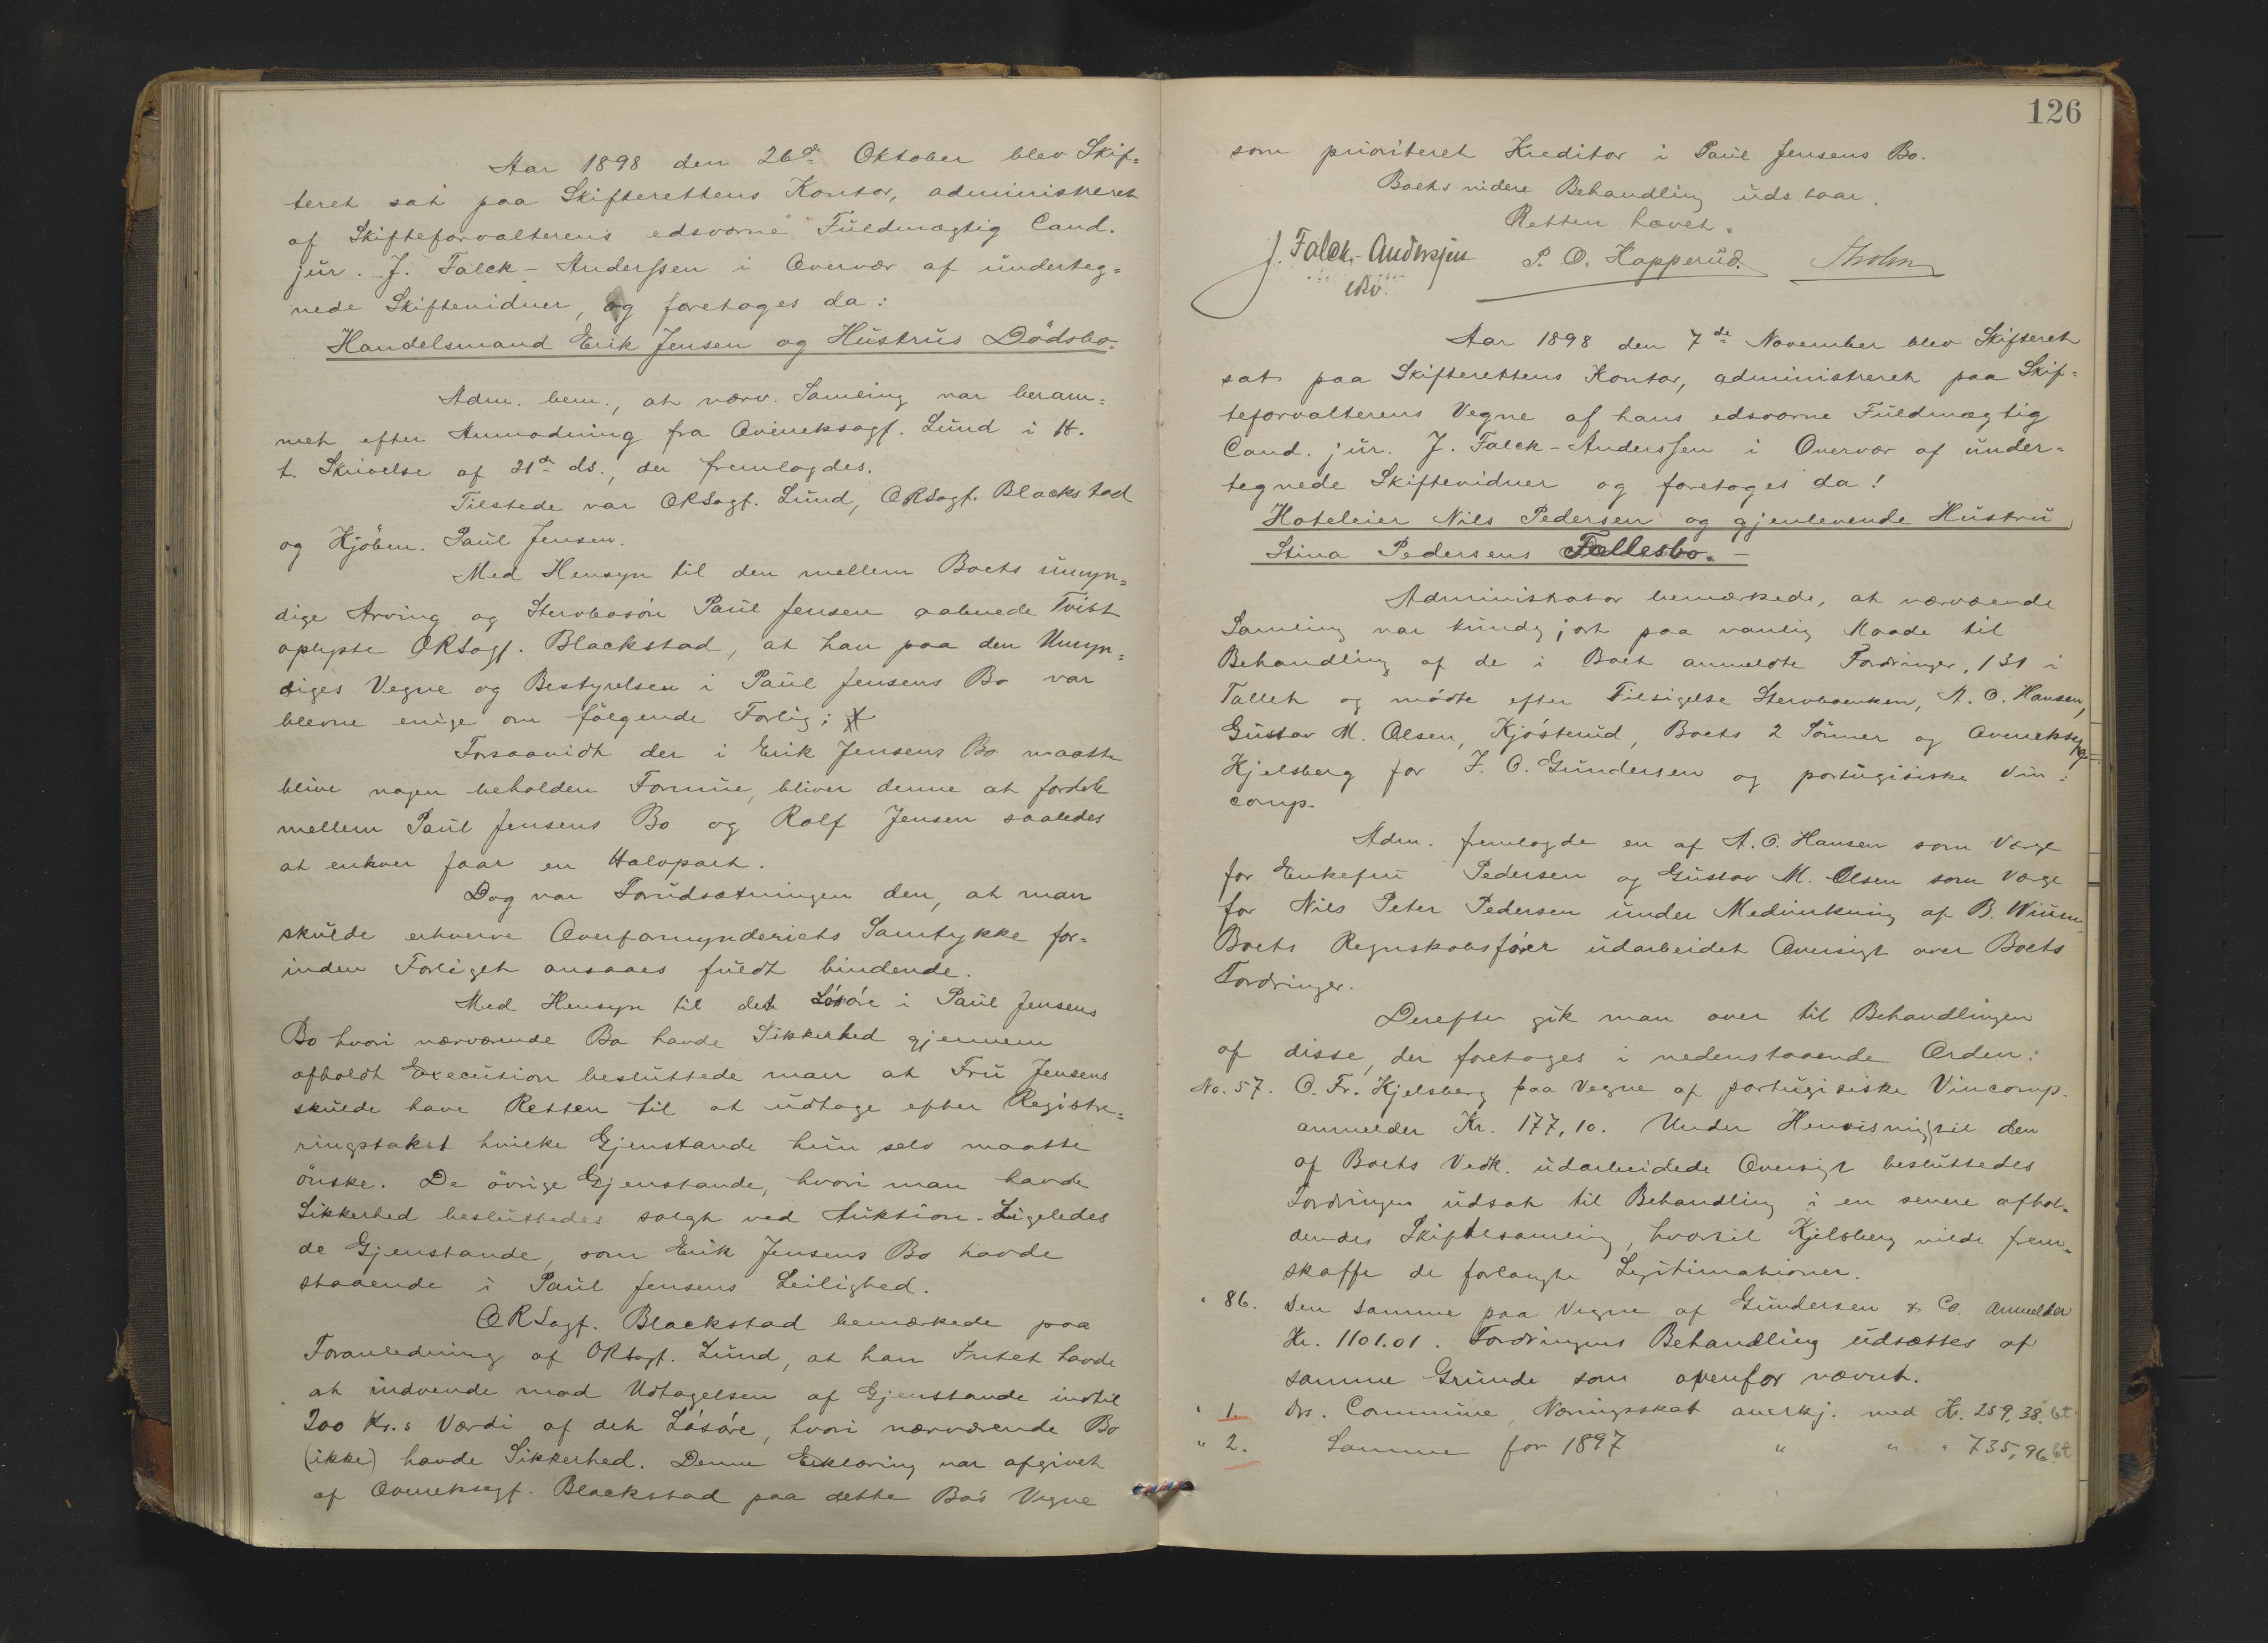 Aar 1898 den 26de Oktober blev Skif=
teret sat paa Skifterettens Kontor, administreret
af Skifteforvalterens edsvorne Fuldmægtig Cand.
jur. J. Falck-Anderssen i Overvær af underteg=
nede Skiftevidner, og foretoges da:
Handelsmand Erik Jensen og Hustrus Dödsbo.
Adm. bem., at nærv. Samling var beram=
met efter Anmodning fra Overretssagf. Lund i H.
t. Skrivelse af 21de ds., der fremlagdes.
Tilstede var ORSagf. Lund, ORSagf. Blackstad
og Kjöbm. Paul Jensen.
Med Hensyn til den mellem Boets umyn=
dige Arving og Stervbosön Paul Jensen aabnede Tvist
oplyste ORSagf. Blackstad, at han paa den Umyn=
diges Vegne og Bestyrelsen i Paul Jensens Bo var
blevne enige om fölgende Forlig;
Forsaavidt der i Erik Jensens Bo maatte
blive nogen beholden Formue, bliver denne at fordele
mellem Paul Jensens Bo og Rolf Jensen saaledes
at enhver faar en Halvpart.
Dog var Forudsætningen den, at man
skulde erhverve Overformynderiets Samtykke for=
inden Forliget ansaaes fuldt bindende.
Med Hensyn til det Lösöre i Paul Jensens
Bo hvori nærværende Bo havde Sikkerhed gjennem
afholdt Execution besluttede man at Fru Jensens
skulde have Retten til at udtage efter Registre=
ringstakst hvilke Gjenstande hun selv maatte
önske. De övrige Gjenstande, hvori man havde
Sikkerhed besluttedes solgt ved Auktion. Ligeledes
de Gjenstande, som Erik Jensens Bo havde
staaende i Paul Jensens Leilighed.
ORSagf. Blackstad bemærkede paa
Foranledning af ORSagf. Lund, at han Intet havde
at indvende mod Udtagelsen af Gjenstande indtil
200 Kr.s Værdi af det Lösöre, hvori nærværende Bo
(ikke) havde Sikkerhed. Denne Erklæring var afgivet
af Overretssagf. Blackstad paa dette Bo's Vegne
126
som prioriteret Kreditor i Paul Jensens Bo.
Boets videre Behandling udstaar.
Retten hævet.
J. Falck-Anderssen P. O. Kopperud. Sholm
edsv.
Aar 1898 den 7de November blev Skifteret
sat paa Skifterettens Kontor, administreret paa Skif=
teforvalterens Vegne af hans edsvorne Fuldmægtig
Cand. jur. J. Falck-Anderssen i Overvær af under=
tegnede Skiftevidner og foretoges da!
Hoteleier Nils Pedersen og gjenlevende Hustru
Stina Pedersens Fællesbo. —
Administrator bemærkede, at nærværende
Samling var kundgjort paa vanlig Maade til
Behandling af de i Boet anmeldte Fordringer, 131 i
Tallet og mödte efter Tilsigelse Stervboenken, A. O. Hansen,
Gustav M. Olsen, Kjósterud, Boets 2 Sönner og Overretssag
Kjelsberg for J. O. Gundersen og portugisiske Vin=
comp.
Adm. fremlagde en af A. O. Hansen som Værge
for Enkefru Pedersen og Gustav M. Olsen som Værge
for Nils Peter Pedersen under Medvirkning af B. Wium,
Boets Regnskabsförer udarbeidet Oversigt over Boets
Fordringer.
Derefter gik man over til Behandlingen
af disse, der foretoges i nedenstaaende Orden:
No. 57. O. Fr. Kjelsberg paa Vegne af portugisiske Vincomp.
anmelder Kr. 177,10. Under Henvisning til den
af Boets Vedk. udarbeidede Oversigt besluttedes
Fordringen udsat til Behandling i en senere afhol=
dendes Skiftesamling, hvortil Kjelsberg vilde frem=
skaffe de forlangte Legitimationer.
" 86. Den samme paa Vegne af Gundersen & Co. anmelder
Kr. 1101.01. Fordringens Behandling udsættes af
samme Grunde som ovenfor nævnt.
" 1. Drs. Commune, Næringsskat anerkj. med Kr. 259,38. bt
" 2. Samme for 1897 " " " 735,96. bt